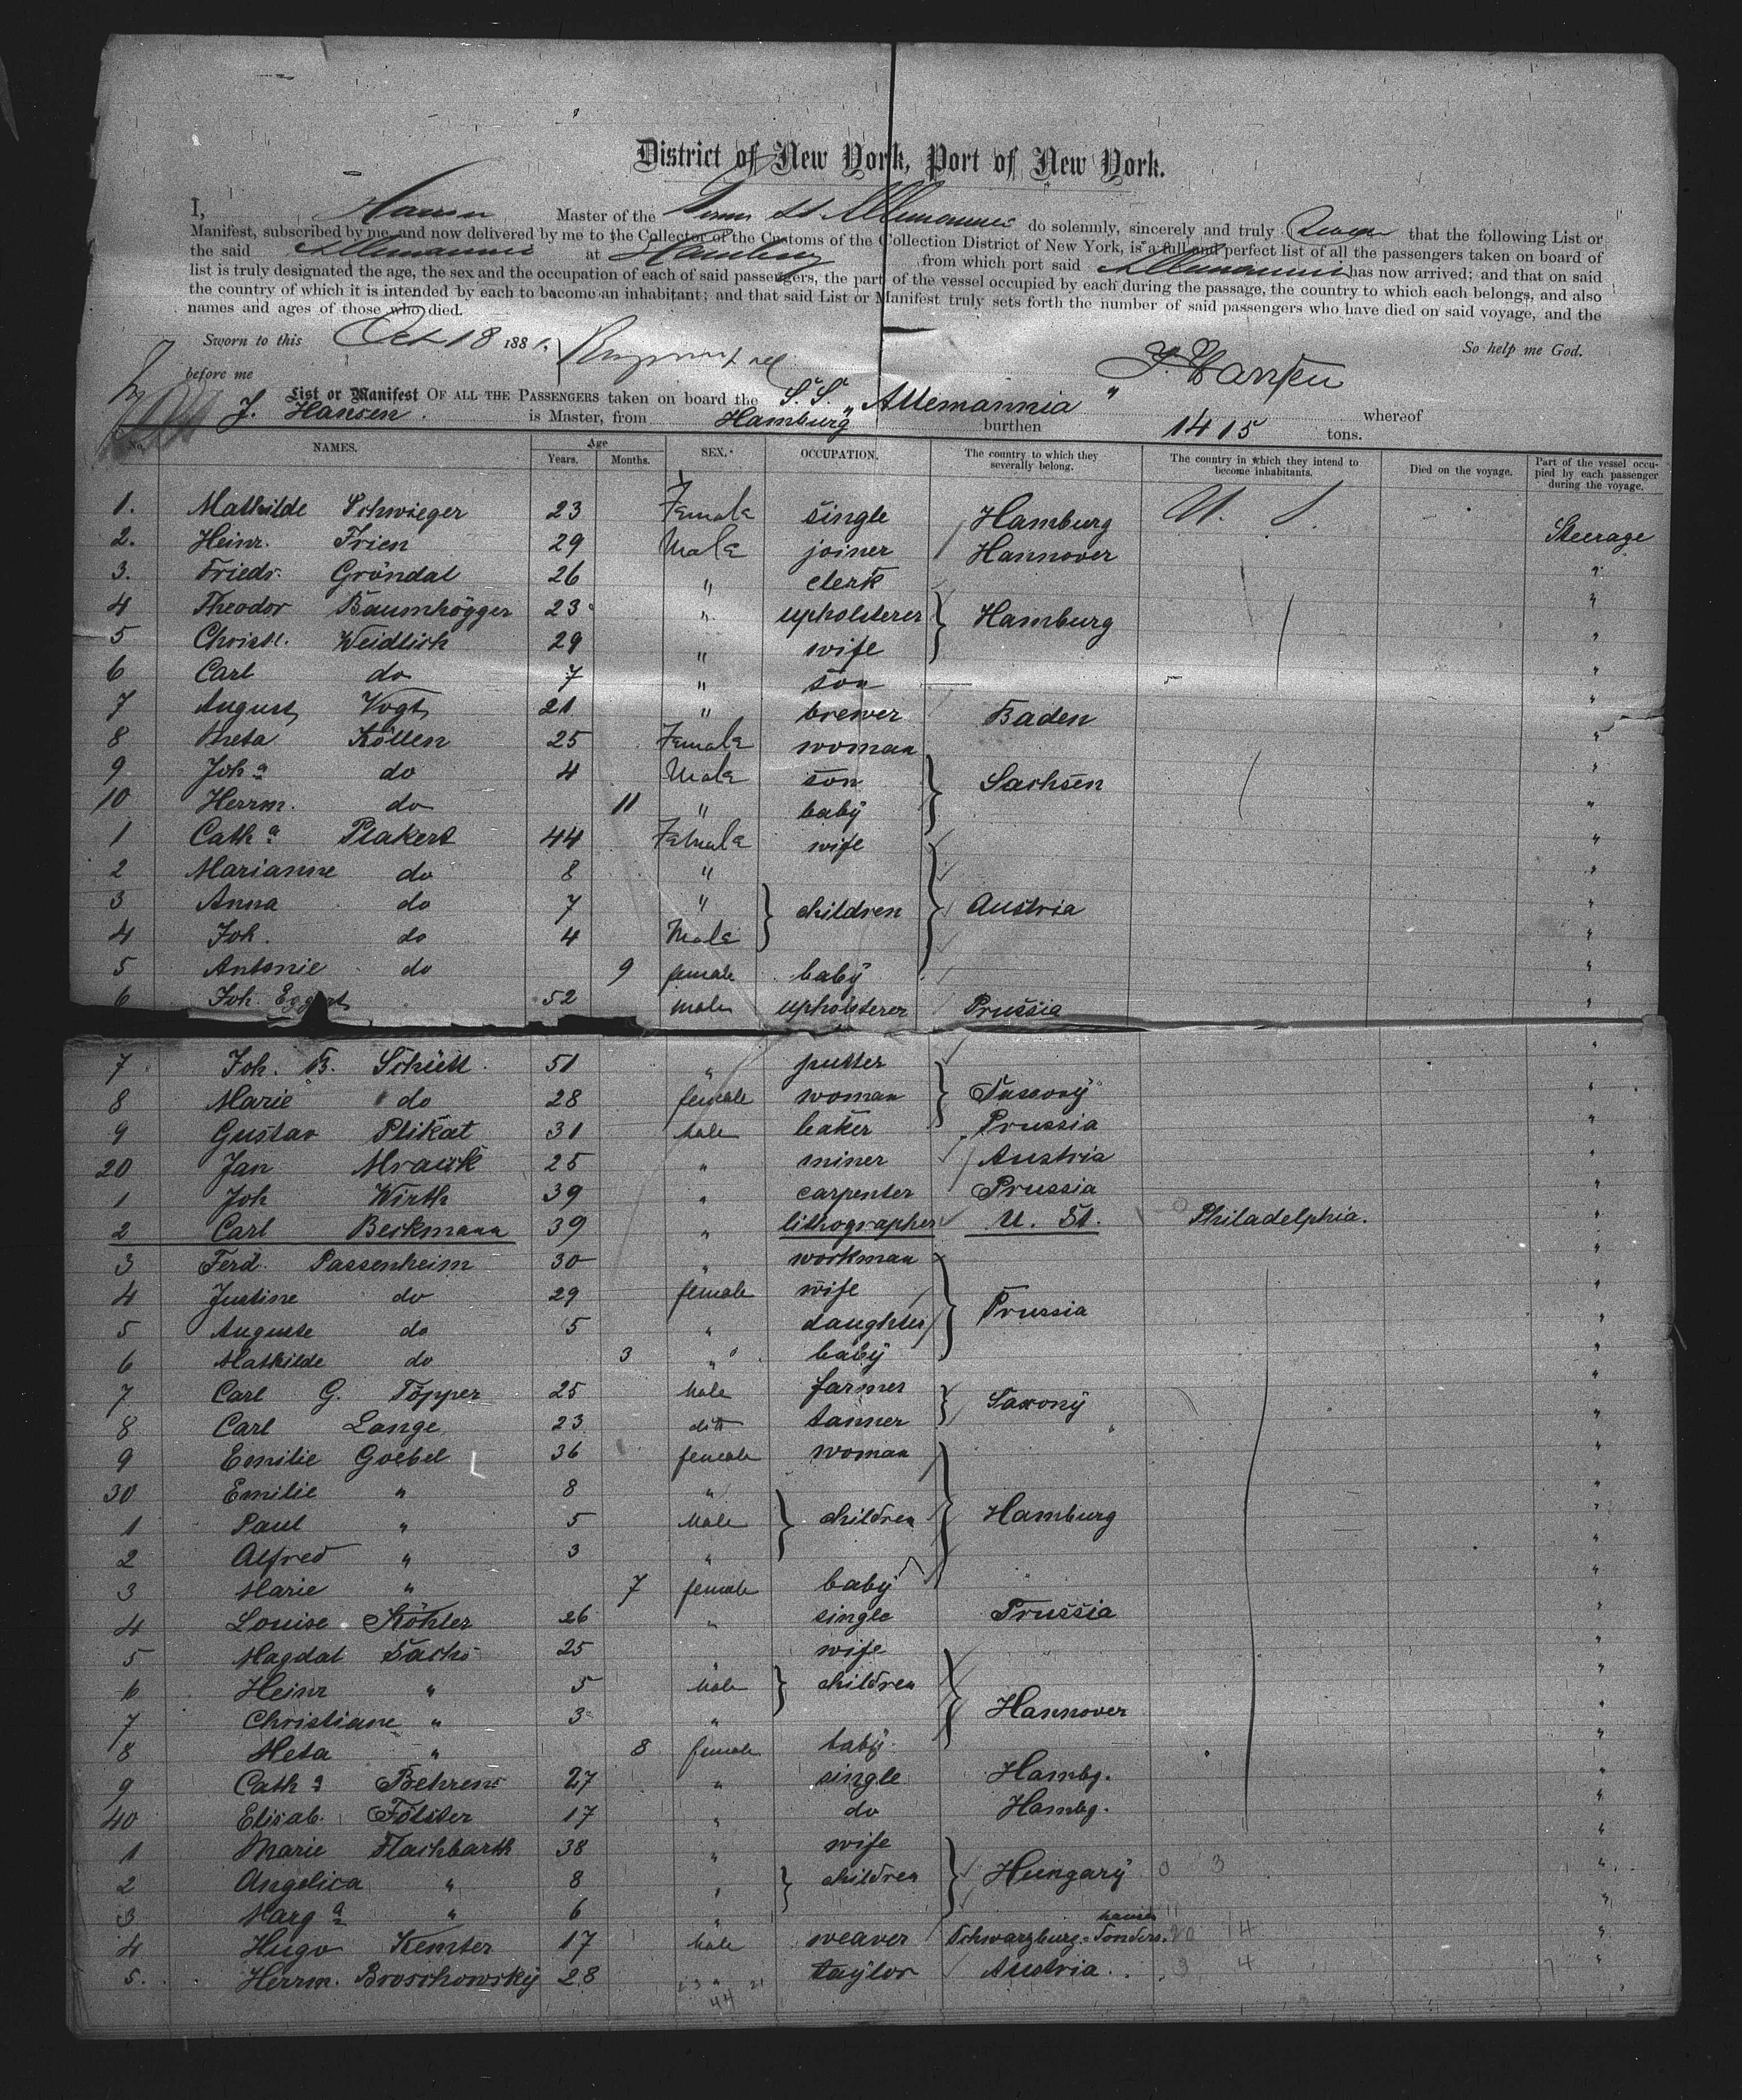 District of New York, Port of New York.
I, Hansen Master of the Allemannia do solemnly, sincerely and truly Swear that the following List or
Manifest, subscribed by me, and now delivered by me to the Collector of the Customs of the Collection District of New York, is a full and perfect list of all the passengers taken on board of
the said Allemannia at Hamburg from which port said Allemannia has now arrived; and that on said
list is truly designated the age, the sex and the occupation of each of said passengers, the part of the vessel occupied by each during the passage, the country to which each belongs, and also
the country of which it is intended by each to become an inhabitant; and that said List or Manifest truly sets forth the number of said passengers who have died on said voyage, and the
names and ages of those who died.
Sworn to this Oct 18 1881, So help me God.
before me J. Hansen
List or Manifest OF ALL THE PASSENGERS taken on board the S.S. "Allemannia" whereof
J. Hansen. is Master, from Hamburg burthen 1415 tons.
No. NAMES. Age Years. Months. SEX. OCCUPATION. The country to which they severally belong. The country in which they intend to become inhabitants. Died on the voyage. Part of the vessel occupied by each passenger during the voyage.
1. Mathilde Schwieger 23 Female single Hamburg U. S. Steerage
2. Heinr. Frien 29 Male joiner Hannover "
3. Friedr. Gröndal 26 " clerk "
4 Theodor Baumhögger 23 " upholsterer Hamburg "
5 Christl. Weidlich 29 " wife "
6 Carl do 7 " son "
7 August Vogt 21 " brewer Baden "
8 Meta Köllen 25 Female woman "
9 Joh a do 4 Male son Sachsen "
10 Herrm. do 11 " baby "
1 Cath a Plakert 44 Female wife "
2 Marianne do 8 " "
3 Anna do 7 " children Austria "
4 Joh. do 4 Male "
5 Antonie do 9 female baby "
6 Joh. Eggert 52 male upholsterer Prussia "
7 Joh. B. Schütt 51 " putter "
8 Marie do 28 female woman Saxony "
9 Gustav Plikat 31 Male baker Prussia "
20 Jan Mrauk 25 " miner Austria "
1 Joh Wirth 39 " carpenter Prussia "
2 Carl Beckmann 39 " lithographer U. St. Philadelphia. "
3 Ferd. Passenheim 30 " workman "
4 Justine do 29 female wife Prussia "
5 Auguste do 5 " daughter "
6 Mathilde do 3 " baby "
7 Carl G. Töpper 25 Male farmer Saxony "
8 Carl Lange 23 ditto tanner "
9 Emilie Goebel 36 female woman "
30 Emilie " 8 " "
1 Paul " 5 Male children Hamburg "
2 Alfred " 3 " "
3 Marie " 7 female baby "
4 Louise Köhler 26 " single Prussia "
5 Magdal Sachs 25 " wife "
6 Heinr " 5 Male children "
7 Christiane " 3 " Hannover "
8 Meta " 8 female baby "
9 Cath a Behrens 27 " single Hambg. "
40 Elisab. Fölster 17 " do Hambg. "
1 Marie Flachbarth 38 " wife "
2 Angelica " 8 " children Hungary "
3 Marg a " 6 " "
4 Hugo Kemter 17 Male weaver Schwarzburg-Sondershausen "
5. Herrm. Broschowsky 28 " taylor Austria. "